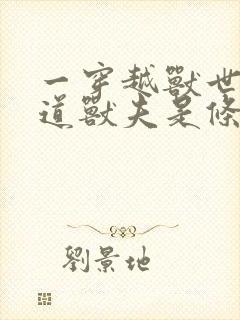 一穿越獸世
道獸夫是條
劉景地